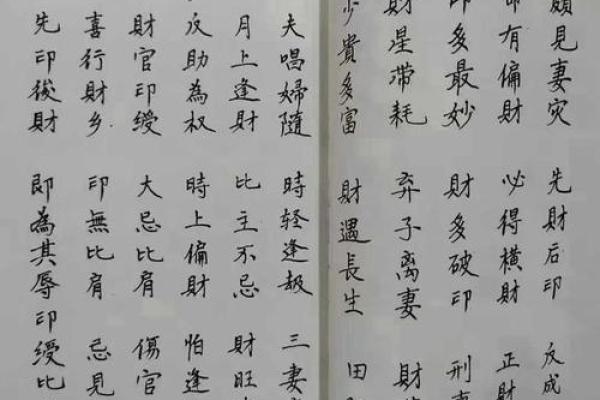 頗見妻灾 先財后印 反成
有偏財 必得橫財 正財
印多最妙 財多破印 刑
財星滞耗 弃子离妻 財
少貴多富 財遇長生 田
夫唱婦隨 時轻逢劫 三妻
月上逢財 比主不忌 財旺
反助為权 時上偏財 怕逢
財官印绶 大忌比肩 傷官
喜行財乡 印無比肩 忌見
先印後財 即為其辱 印绶比